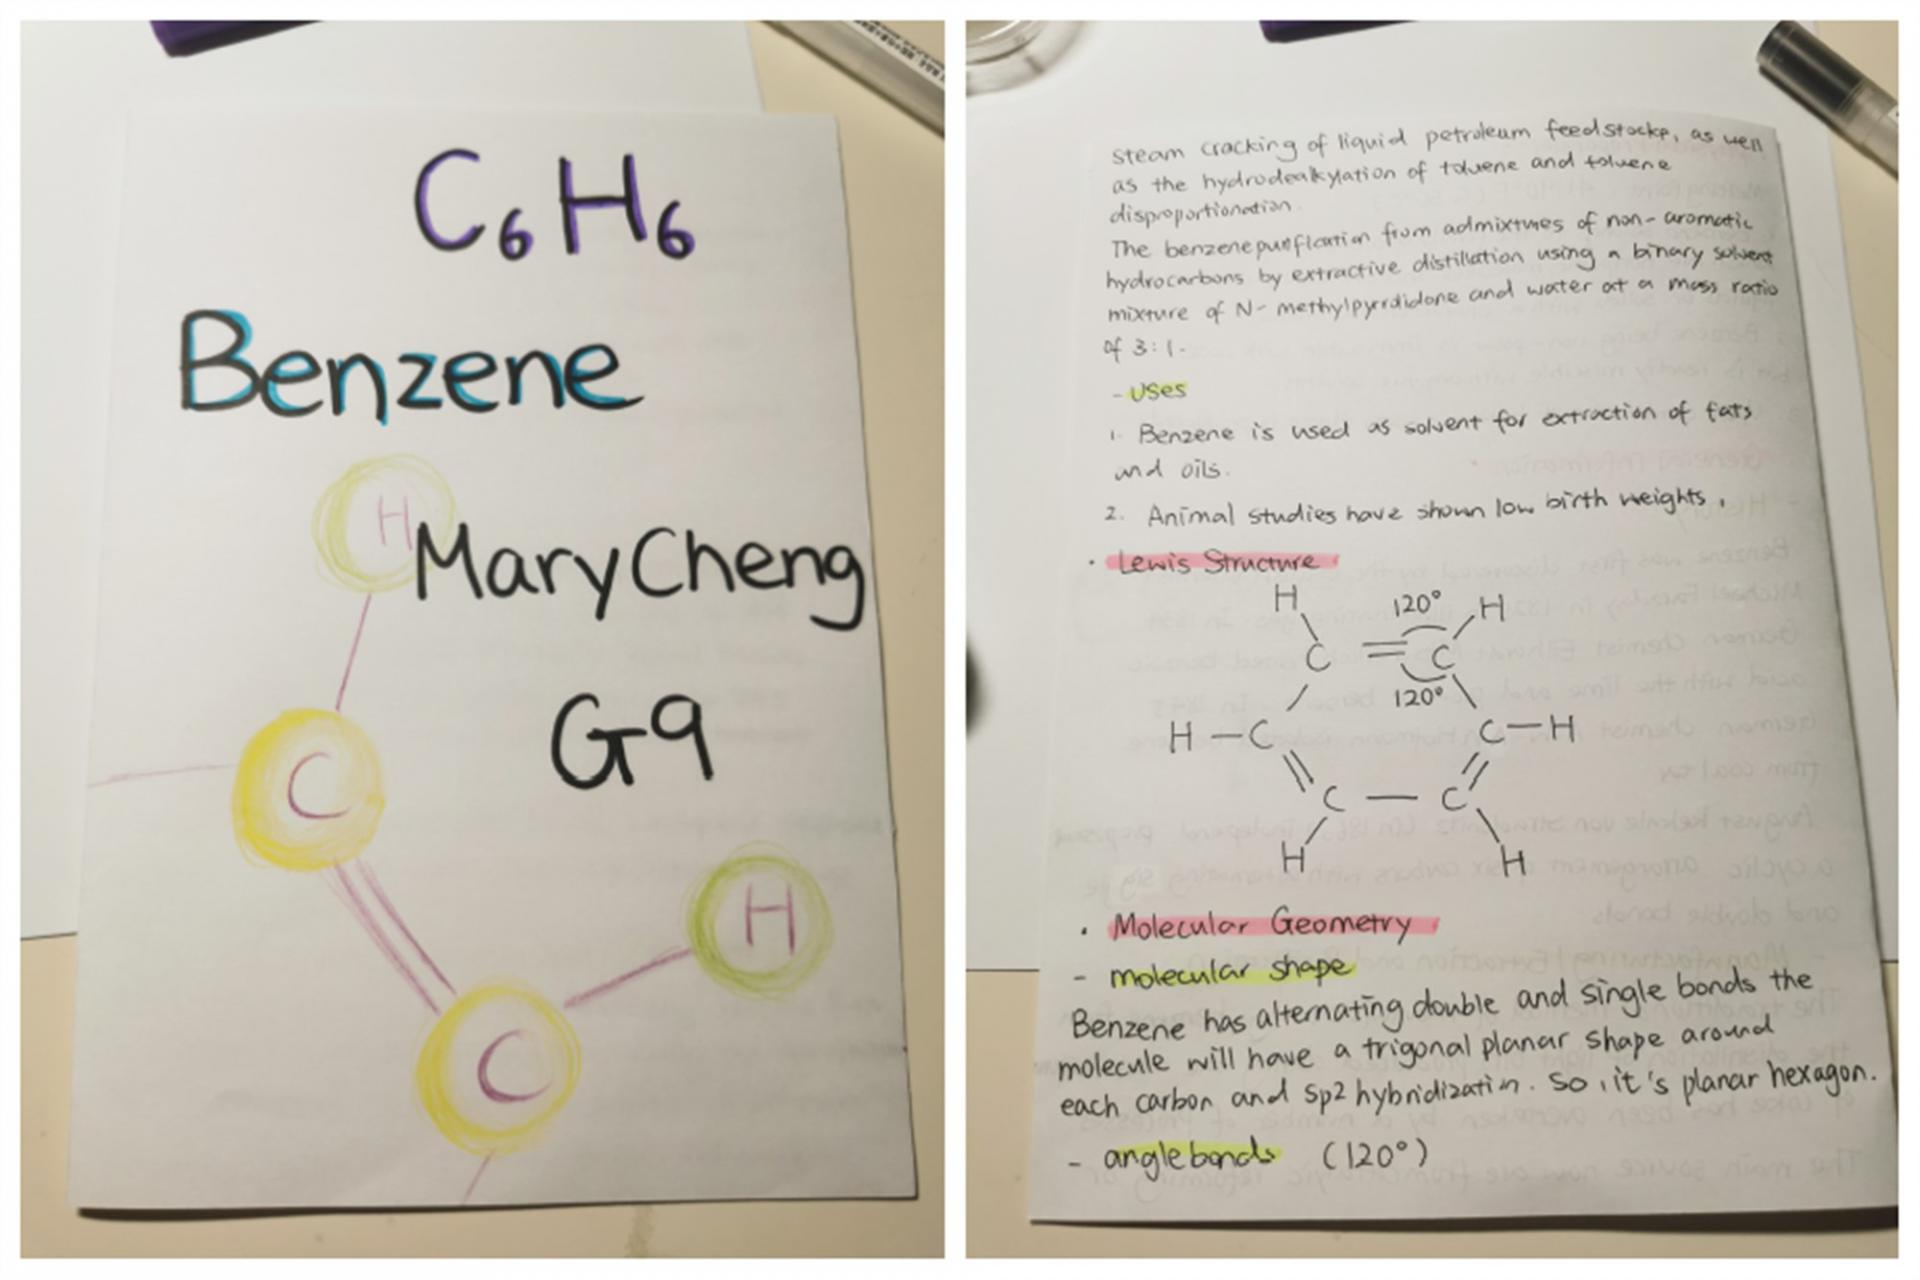 C6H6
Benzene
H
Mary Cheng
G9
C
H
C
steam cracking of liquid petroleum feedstocke, as well
as the hydrodealkylation of toluene and toluene
disproportionation.
The benzene purification from admixtures of non-aromatic
hydrocarbons by extractive distillation using a binary solvent
mixture of N-methylpyrrdidone and water at a mass ratio
of 3:1.
- Uses
1. Benzene is used as solvent for extraction of fats
and oils.
2. Animal studies have shown low birth weights.
• Lewis Structure
H 120° H
C = C
120°
H - C C - H
C - C
H H
• Molecular Geometry
- molecular shape
Benzene has alternating double and single bonds the
molecule will have a trigonal planar shape around
each carbon and sp2 hybridization. So, it's planar hexagon.
- angle bonds (120°)